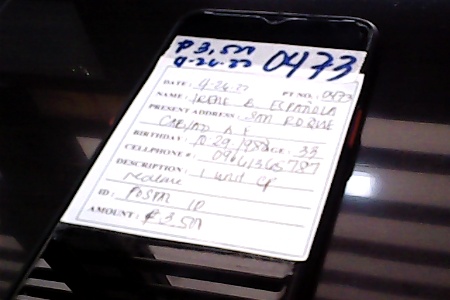 ₱3,500
9-26-22 0473
DATE: 9-26-22 PT NO. 0473
NAME: IRENE B ESPAÑOLA
PRESENT ADDRESS: SAN ROQUE
BIRTHDAY: 10 29 1988 AGE: 33
CELLPHONE #: 09614365787
DESCRIPTION: 1 unit CP
realme
ID: POSTAL ID
AMOUNT: ₱3,500